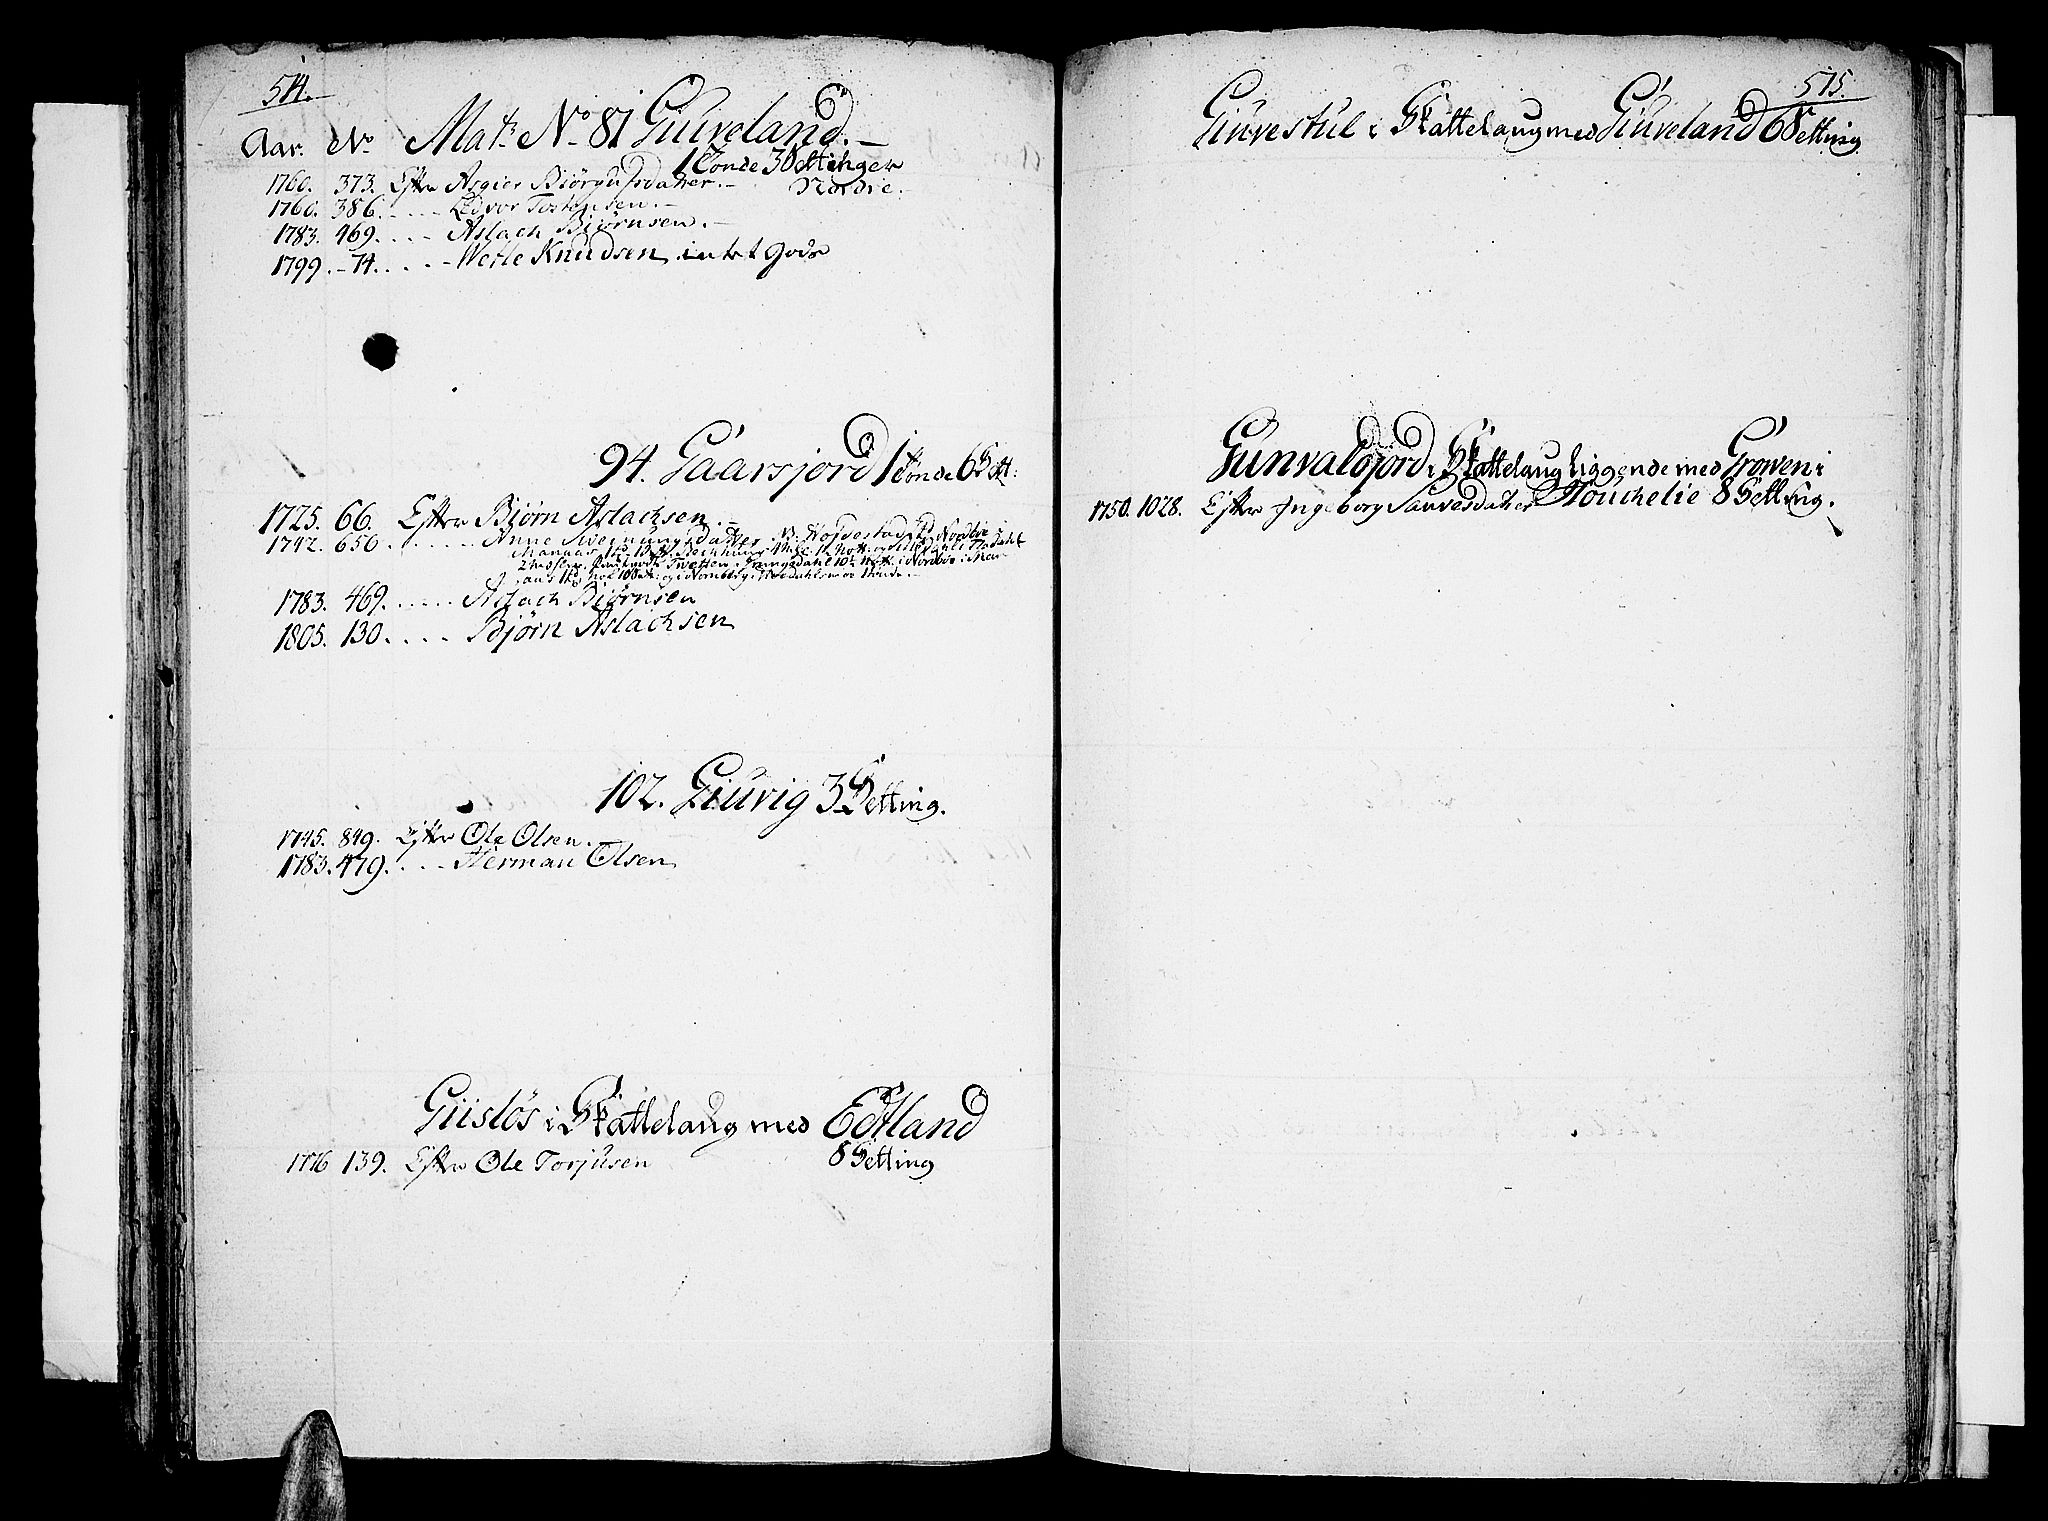 514.
Aar. No Matr No 81 Giuveland. –
1 Tønde 3 Settinger
1760. 373. Efter Asgier Biørgulfsdatter. –
1760. 386. . . . . Tostensen. –
1783. 469. . . . Aslach Biørnsen. –
1799. – 74. . . . . Wetle Knudsen intet Gods
94. Gaarsjord 1 Tønde 6 Sett:
1725. 66. Efter Biørn Aslachsen. –
1742. 650. . . . . . Anne Sveinungsdatter
1783. 469. . . . . . Aslach Biørnsen
1805. 130. . . . . Bjørn Aslachsen
102. Giuvig 3 Setting.
1745. 849. Efter Ole Olsen.
1783. 479. . . . Herman Olsen
Giisløs i Skattelaug med Edtland
8 Setting
1776 139. Efter Ole Torjusen
515.
Giuvestul i Skattelaug med Giuveland 6 Setting
Gunvaldsjord i Skattelaug liggende med Groven i
Houchelie 8 Setting.
1750. 1028. Efter Ingeborg Sauvesdatter